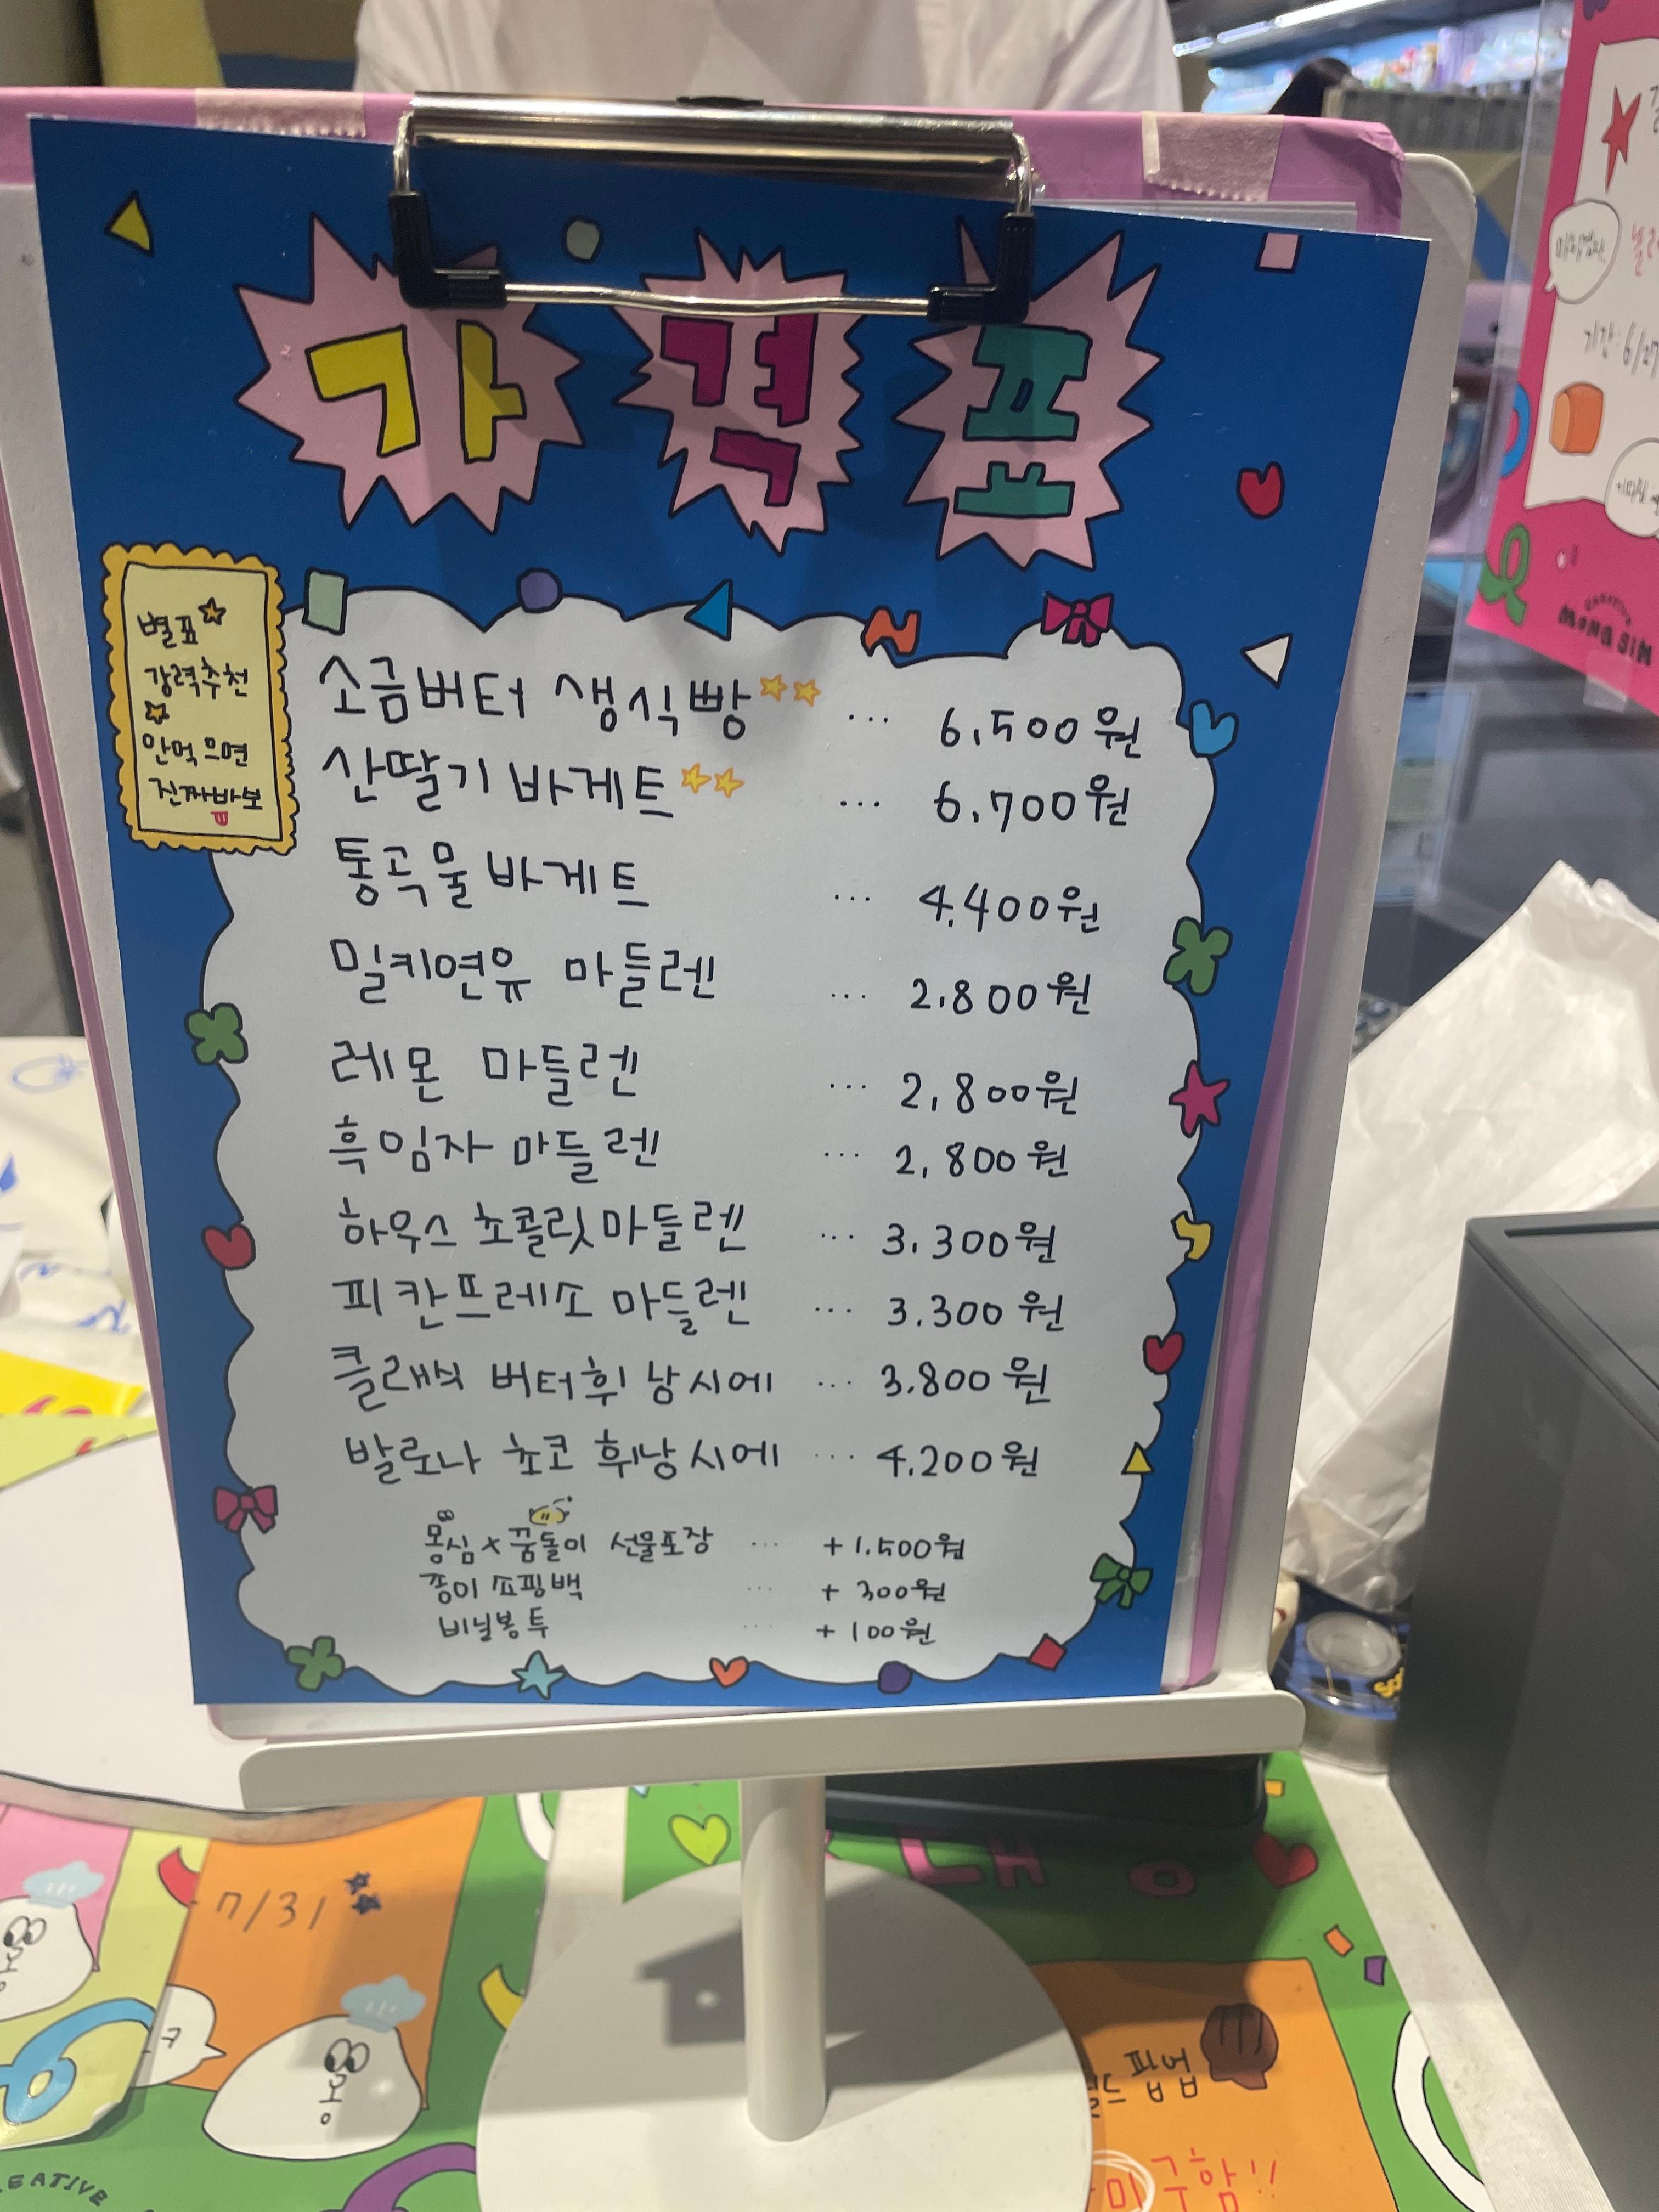 가격표
별표☆
강력추천
☆
안먹으면
진짜바보
소금버터 생식빵☆☆ ... 6,500원
산딸기 바게트☆☆ ... 6,700원
통곡물 바게트 ... 4,400원
밀키연유 마들렌 ... 2.800원
레몬 마들렌 ... 2,800원
흑임자 마들렌 ... 2,800원
하우스 초콜릿 마들렌 ... 3.300원
피칸프레소 마들렌 ... 3.300원
클래식 버터휘낭시에 ... 3.800원
발로나 초코 휘낭시에 ... 4.200원
몽심 x 꿈돌이 선물포장 ... +1.500원
종이 쇼핑백 ... + 300원
비닐봉투 ... + 100원
기간: 6/27
MONG SIM
7/31
몽
팝업
구함!!